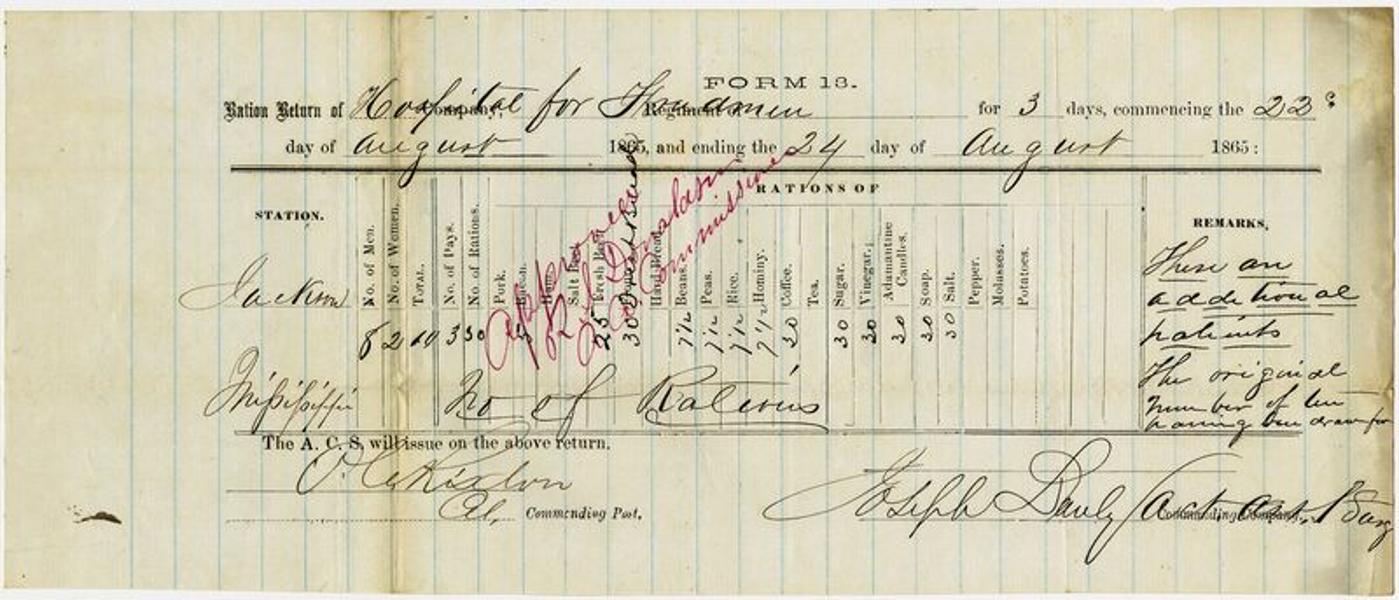 FORM 13.
Ration Return of Hospital for Freedmen Company, Regiment of for 3 days, commencing the 22
day of August 1865, and ending the 24 day of August 1865:
RATIONS OF
STATION. No. of Men. No. of Women. TOTAL. No. of Days. No. of Rations. Pork. Bacon. Ham. Salt Beef. Fresh Beef. Hard Bread. Beans. Peas. Rice. Hominy. Coffee. Tea. Sugar. Vinegar. Adamantine Candles. Soap. Salt. Pepper. Molasses. Potatoes. REMARKS.
Approved
Donaldson
Commissioner
Jackson
8 2 10 3 30 25 30 7½ 7½ 7½ 7½ 30 30 30 30 30 30
Mississippi
No of Rations
These are
additional
patients
The original
number of ten
having been drawn for
The A. C. S. will issue on the above return.
Col. Commending Post.
Joseph Act. Asst. Surg
Commanding Company.